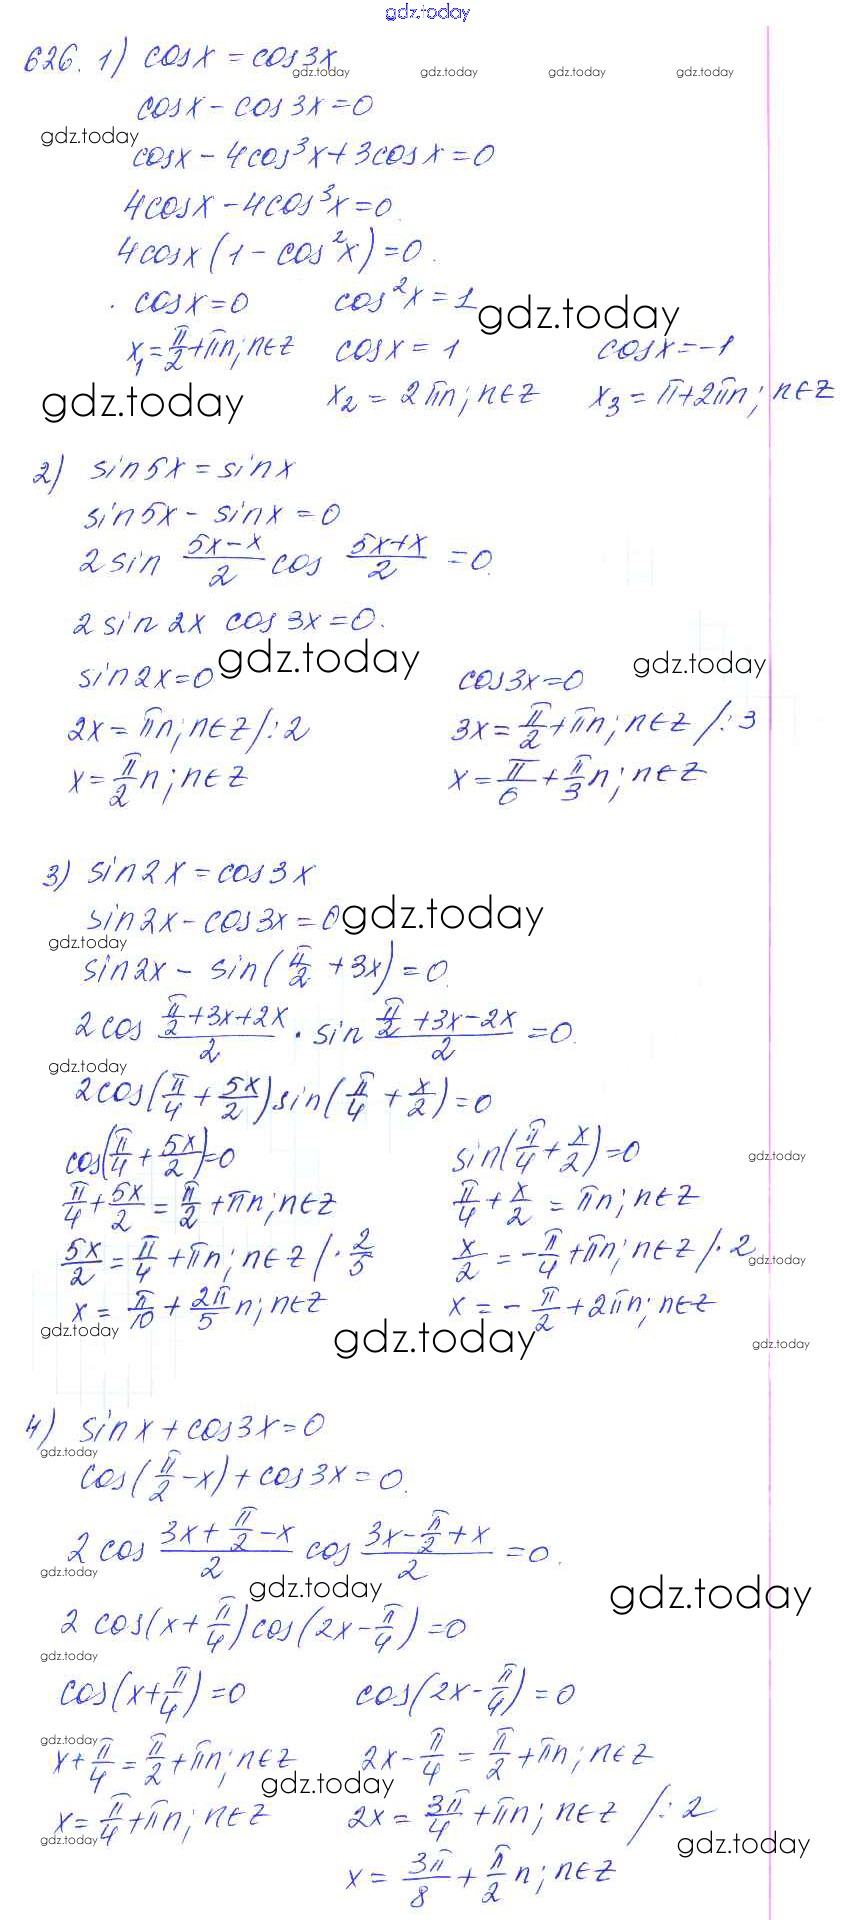 gdz.today
626. 1) cosx = cos3x
gdz.today gdz.today gdz.today gdz.today
cosx - cos3x = 0
gdz.today
cosx - 4cos³x + 3cosx = 0
4cosx - 4cos³x = 0
4cosx(1 - cos²x) = 0.
cosx = 0 cos²x = 1 gdz.today
x₁ = π/2 + πn; n∈Z cosx = 1 cosx = -1
gdz.today x₂ = 2πn; n∈Z x₃ = π + 2πn; n∈Z
2) sin5x = sinx
sin5x - sinx = 0
2sin (5x-x)/2 cos (5x+x)/2 = 0.
2sin2x cos3x = 0.
sin2x = 0 gdz.today cos3x = 0 gdz.today
2x = πn; n∈Z /:2 3x = π/2 + πn; n∈Z /:3
x = π/2 n; n∈Z x = π/6 + π/3 n; n∈Z
3) sin2x = cos3x
sin2x - cos3x = 0 gdz.today
gdz.today
sin2x - sin(π/2 + 3x) = 0.
2cos (π/2+3x+2x)/2 · sin (π/2+3x-2x)/2 = 0.
gdz.today
2cos(π/4 + 5x/2)sin(π/4 + x/2) = 0
cos(π/4 + 5x/2) = 0 sin(π/4 + x/2) = 0 gdz.today
π/4 + 5x/2 = π/2 + πn; n∈Z π/4 + x/2 = πn; n∈Z
5x/2 = π/4 + πn; n∈Z /· 2/5 x/2 = -π/4 + πn; n∈Z /·2 gdz.today
x = π/10 + 2π/5 n; n∈Z x = -π/2 + 2πn; n∈Z
gdz.today gdz.today gdz.today
4) sinx + cos3x = 0
gdz.today
cos(π/2 - x) + cos3x = 0.
2cos (3x+π/2-x)/2 cos (3x-π/2+x)/2 = 0.
gdz.today gdz.today gdz.today
2cos(x + π/4)cos(2x - π/4) = 0
gdz.today
cos(x + π/4) = 0 cos(2x - π/4) = 0
gdz.today
x + π/4 = π/2 + πn; n∈Z 2x - π/4 = π/2 + πn; n∈Z
gdz.today
x = π/4 + πn; n∈Z 2x = 3π/4 + πn; n∈Z /:2
gdz.today gdz.today
x = 3π/8 + π/2 n; n∈Z